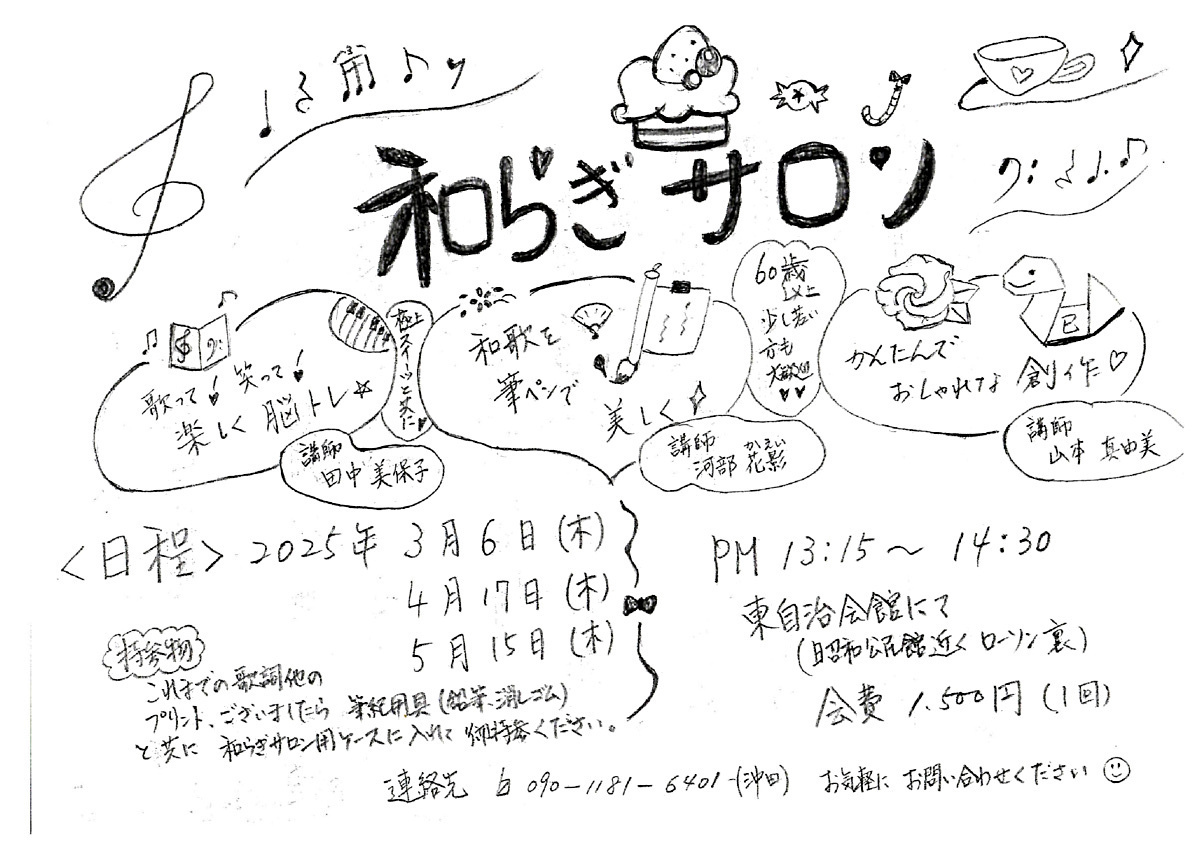 和らぎサロン
歌って！笑って！
楽しく脳トレ☆
講師
田中 美保子
極上スイーツと共に♥
和歌を
筆ペンで
美しく
講師
かえい
河部 花影
60歳
以上
少し若い
方も
大歓迎!!
♥♥
かんたんで
おしゃれな 創作♡
巳
講師
山本 真由美
<日程> 2025年 3月6日(木)
4月17日(木)
5月15日(木)
PM 13:15〜14:30
東自治会館にて
(昭和公民館近く ローソン裏)
会費 1,500円(1回)
持参物
これまでの歌詞他の
プリント、ございましたら 筆記用具(鉛筆、消しゴム)
と共に 和らぎサロン用ケースに入れて 御持参ください。
連絡先 090-1181-6401 (沖田) お気軽に お問い合わせください